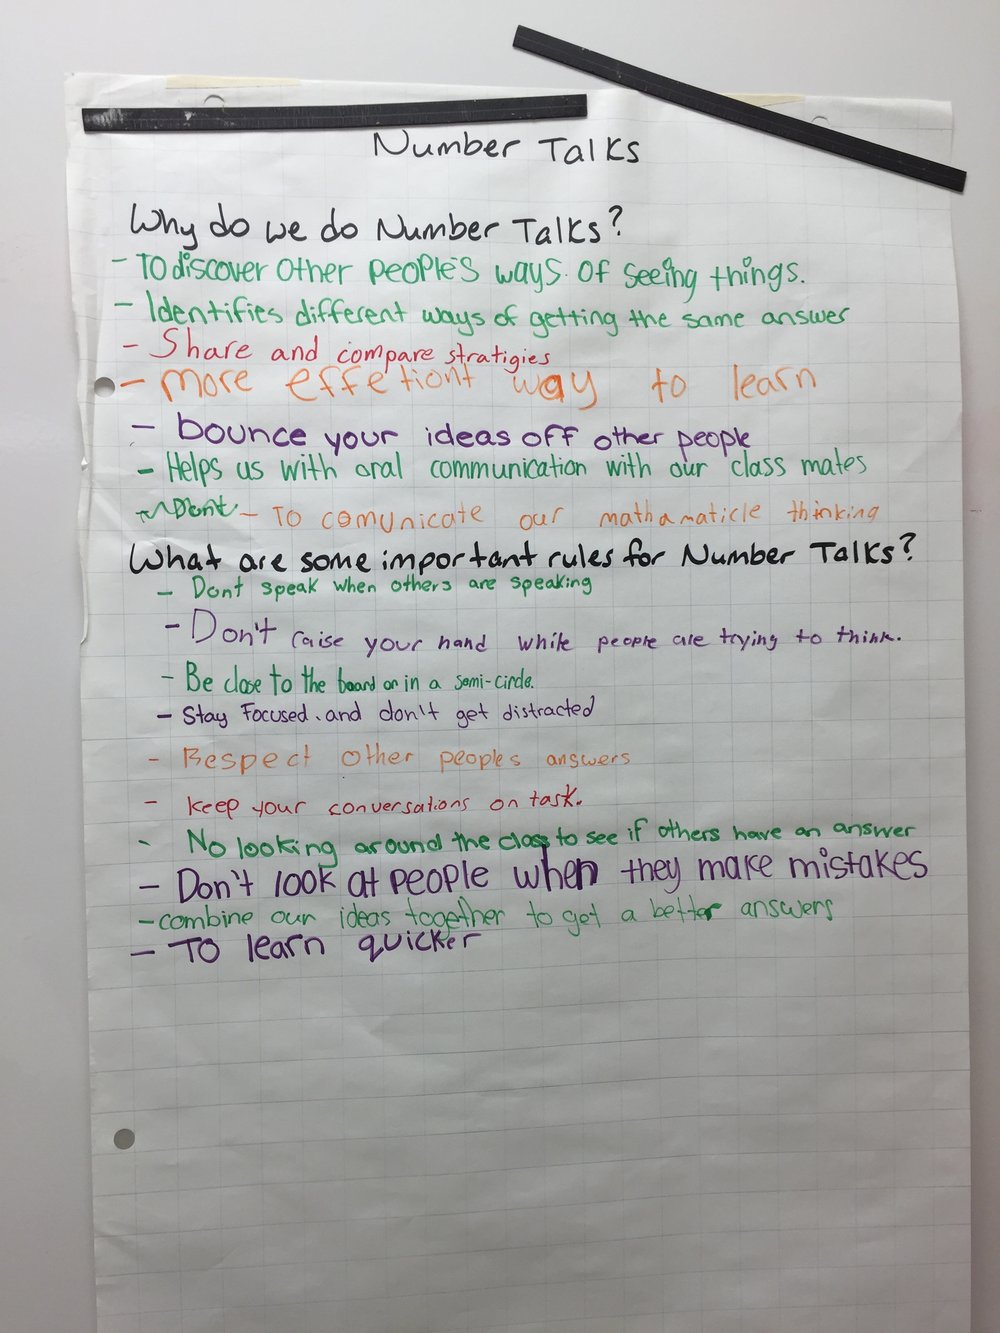 Number Talks
Why do we do Number Talks?
- To discover other people's ways of seeing things.
- Identifies different ways of getting the same answer
- Share and compare stratigies
- more effetiont way to learn
- bounce your ideas off other people
- Helps us with oral communication with our class mates
Dont - To comunicate our mathamaticle thinking
What are some important rules for Number Talks?
- Dont speak when others are speaking
- Don't raise your hand while people are trying to think.
- Be close to the board or in a semi-circle.
- Stay Focused. and don't get distracted
- Respect other peoples answers
- keep your conversations on task.
- No looking around the class to see if others have an answer
- Don't look at people when they make mistakes
- combine our ideas together to get a better answers
- To learn quicker